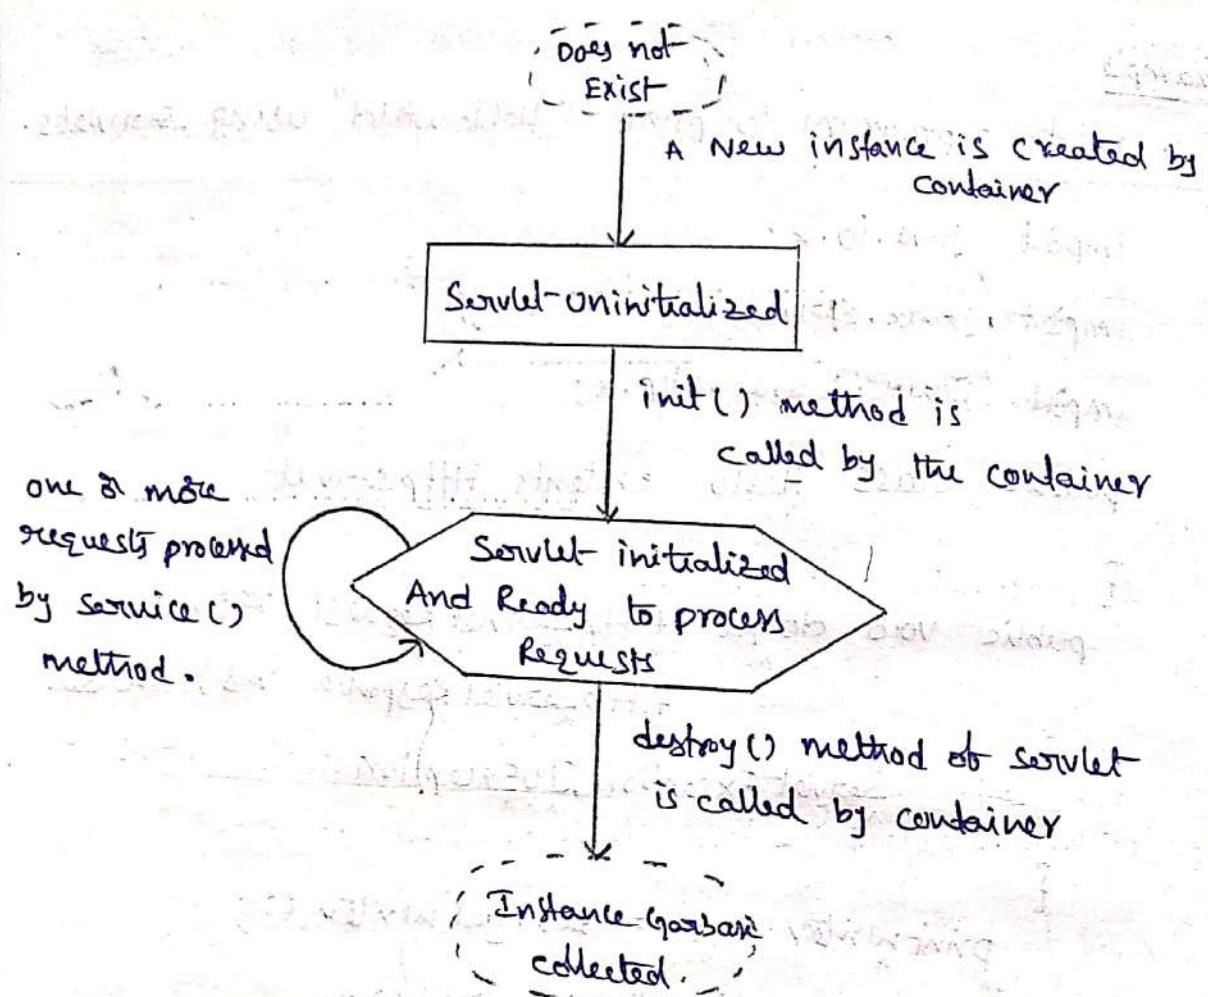 Does not
Exist
A New instance is created by
container
Servlet-uninitialized
init() method is
called by the container
one or more
requests processed
by service()
method.
Servlet initialized
And Ready to process
Requests
destroy() method of servlet
is called by container
Instance Garbage
collected.